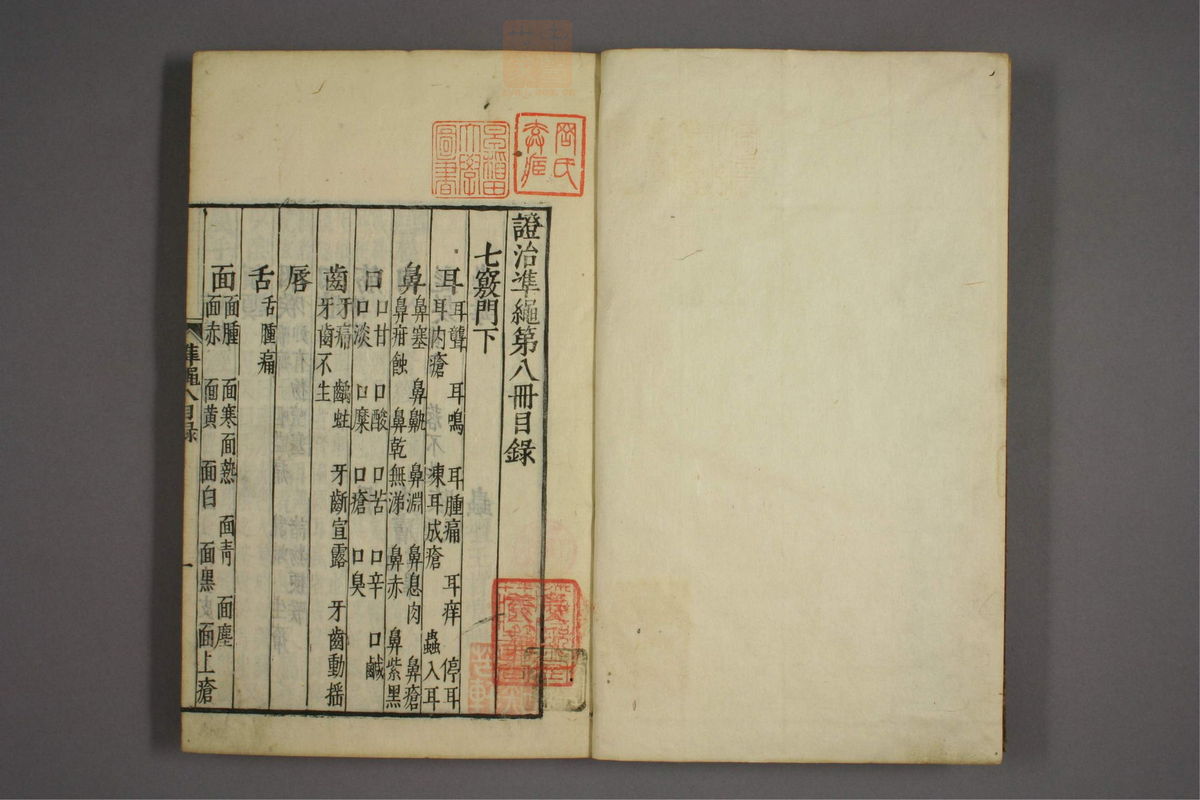 證治準繩第八冊目錄
七竅門下
耳 耳聾 耳鳴 耳腫痛 耳痒 停耳
耳內瘡 凍耳成瘡 蟲入耳
鼻 鼻塞 鼻鼽 鼻淵 鼻息肉 鼻瘡
鼻疳蝕 鼻乾無涕 鼻赤 鼻紫黑
口 口甘 口酸 口苦 口辛 口鹹
口淡 口糜 口瘡 口臭
齒 牙痛 齲蛀 牙齗宣露 牙齒動搖
牙齒不生
唇
舌 舌腫痛
面 面腫 面寒面熱 面青 面塵
面赤 面黄 面白 面黑 面上瘡
準繩八目錄
一
圖書